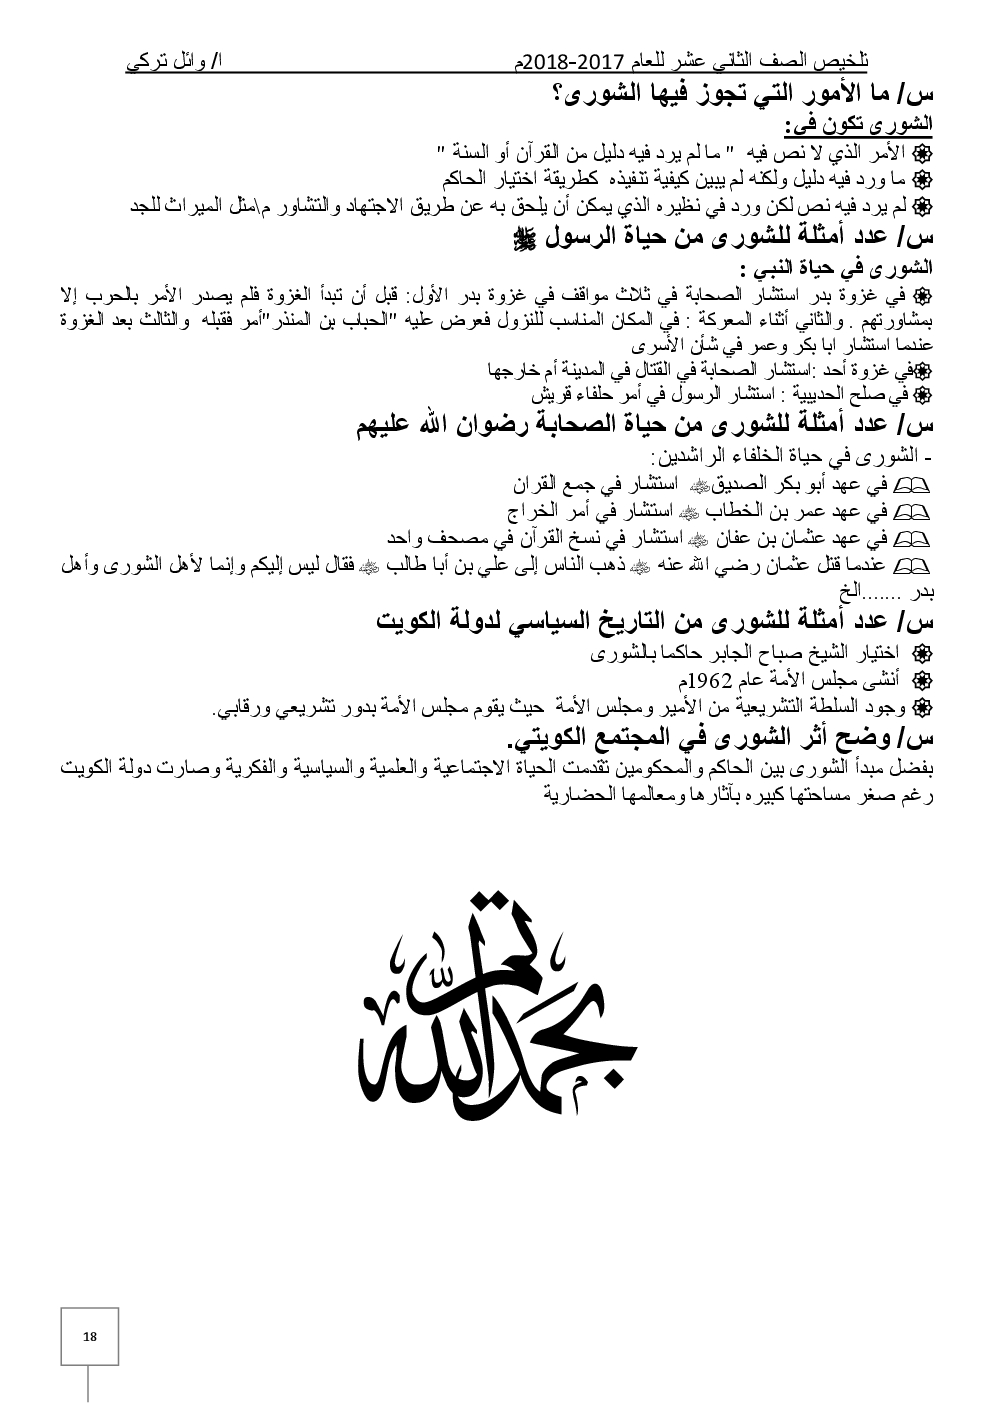 تلخيص الصف الثاني عشر للعام 2017-2018م ا/ وائل تركي
س/ ما الأمور التي تجوز فيها الشورى؟
الشورى تكون في:
الأمر الذي لا نص فيه " ما لم يرد فيه دليل من القرآن أو السنة "
ما ورد فيه دليل ولكنه لم يبين كيفية تنفيذه كطريقة اختيار الحاكم
لم يرد فيه نص لكن ورد في نظيره الذي يمكن أن يلحق به عن طريق الاجتهاد والتشاور م\مثل الميراث للجد
س/ عدد أمثلة للشورى من حياة الرسول ﷺ
الشورى في حياة النبي :
في غزوة بدر استشار الصحابة في ثلاث مواقف في غزوة بدر الأول: قبل أن تبدأ الغزوة فلم يصدر الأمر بالحرب إلا
بمشاورتهم . والثاني أثناء المعركة : في المكان المناسب للنزول فعرض عليه "الحباب بن المنذر"أمر فقبله والثالث بعد الغزوة
عندما استشار ابا بكر وعمر في شأن الأسرى
في غزوة أحد :استشار الصحابة في القتال في المدينة أم خارجها
في صلح الحديبية : استشار الرسول في أمر حلفاء قريش
س/ عدد أمثلة للشورى من حياة الصحابة رضوان الله عليهم
- الشورى في حياة الخلفاء الراشدين:
في عهد أبو بكر الصديق استشار في جمع القران
في عهد عمر بن الخطاب استشار في أمر الخراج
في عهد عثمان بن عفان استشار في نسخ القرآن في مصحف واحد
عندما قتل عثمان رضي الله عنه ذهب الناس إلى علي بن أبا طالب فقال ليس إليكم وإنما لأهل الشورى وأهل
بدر .......الخ
س/ عدد أمثلة للشورى من التاريخ السياسي لدولة الكويت
اختيار الشيخ صباح الجابر حاكما بالشورى
أنشى مجلس الأمة عام 1962م
وجود السلطة التشريعية من الأمير ومجلس الأمة حيث يقوم مجلس الأمة بدور تشريعي ورقابي.
س/ وضح أثر الشورى في المجتمع الكويتي.
بفضل مبدأ الشورى بين الحاكم والمحكومين تقدمت الحياة الاجتماعية والعلمية والسياسية والفكرية وصارت دولة الكويت
رغم صغر مساحتها كبيره بآثارها ومعالمها الحضارية
تم بحمد الله
18